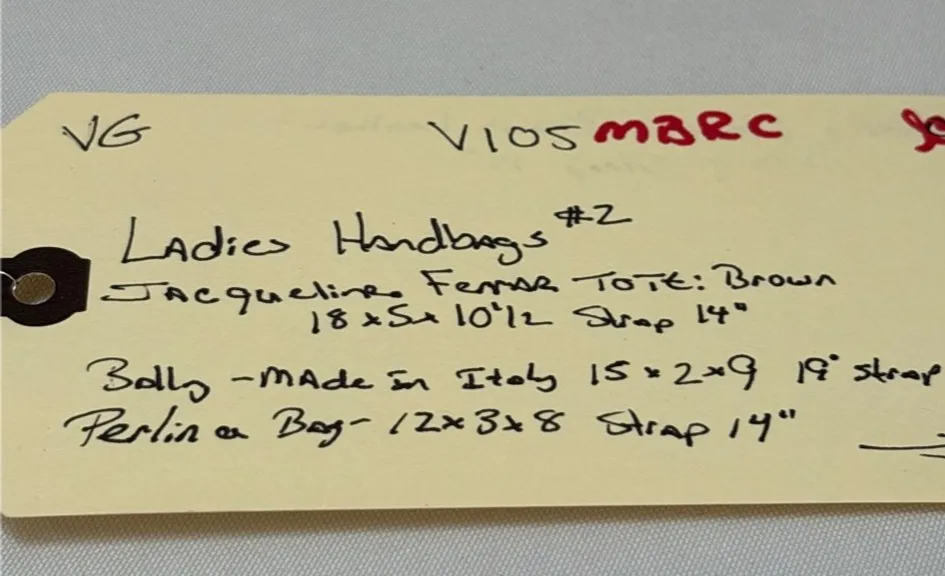 VG V105 MBRC
Ladies Handbags #2
Jacqueline Ferrar Tote: Brown
18 x 5 x 10 1/2 Strap 14"
Bally - Made in Italy 15 x 2 x 9 19" strap
Perlina Bag - 12 x 3 x 8 Strap 14"